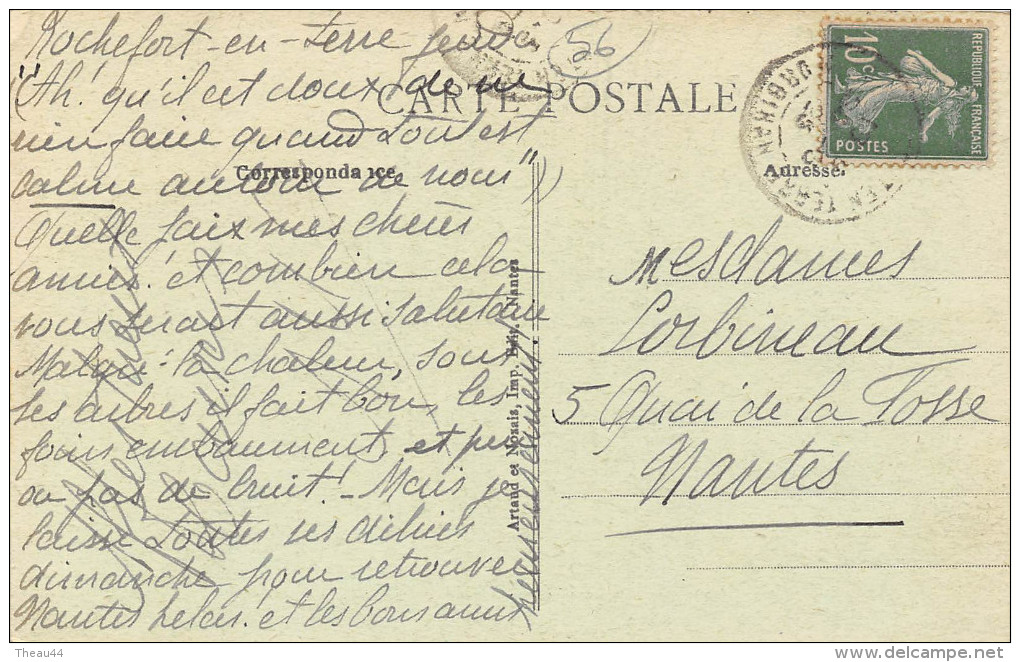 Rochefort-en-terre jeudi
"Ah! qu'il est doux de ne
rien faire quand tout est
calme autour de nous"
Quelle paix mes chères
amies! et combien cela
vous serait aussi salutaire
Malgré la chaleur, sous
les arbres il fait bon, les
foins embaument, et peu
ou pas de bruit! Mais je
laisse toutes ses délices
dimanche pour retrouver
Nantes hélas! et les bons amis
heureusement!
56
CARTE POSTALE
Correspondance
Adresse.
Artaud et Nozais, Imp. Edit. Nantes
Mesdames
Lorbineau
5 Quai de la Fosse
Nantes
10 C
REPUBLIQUE FRANÇAISE
POSTES
MORBIHAN
EN TERRE
Theau44
www.delcampe.net